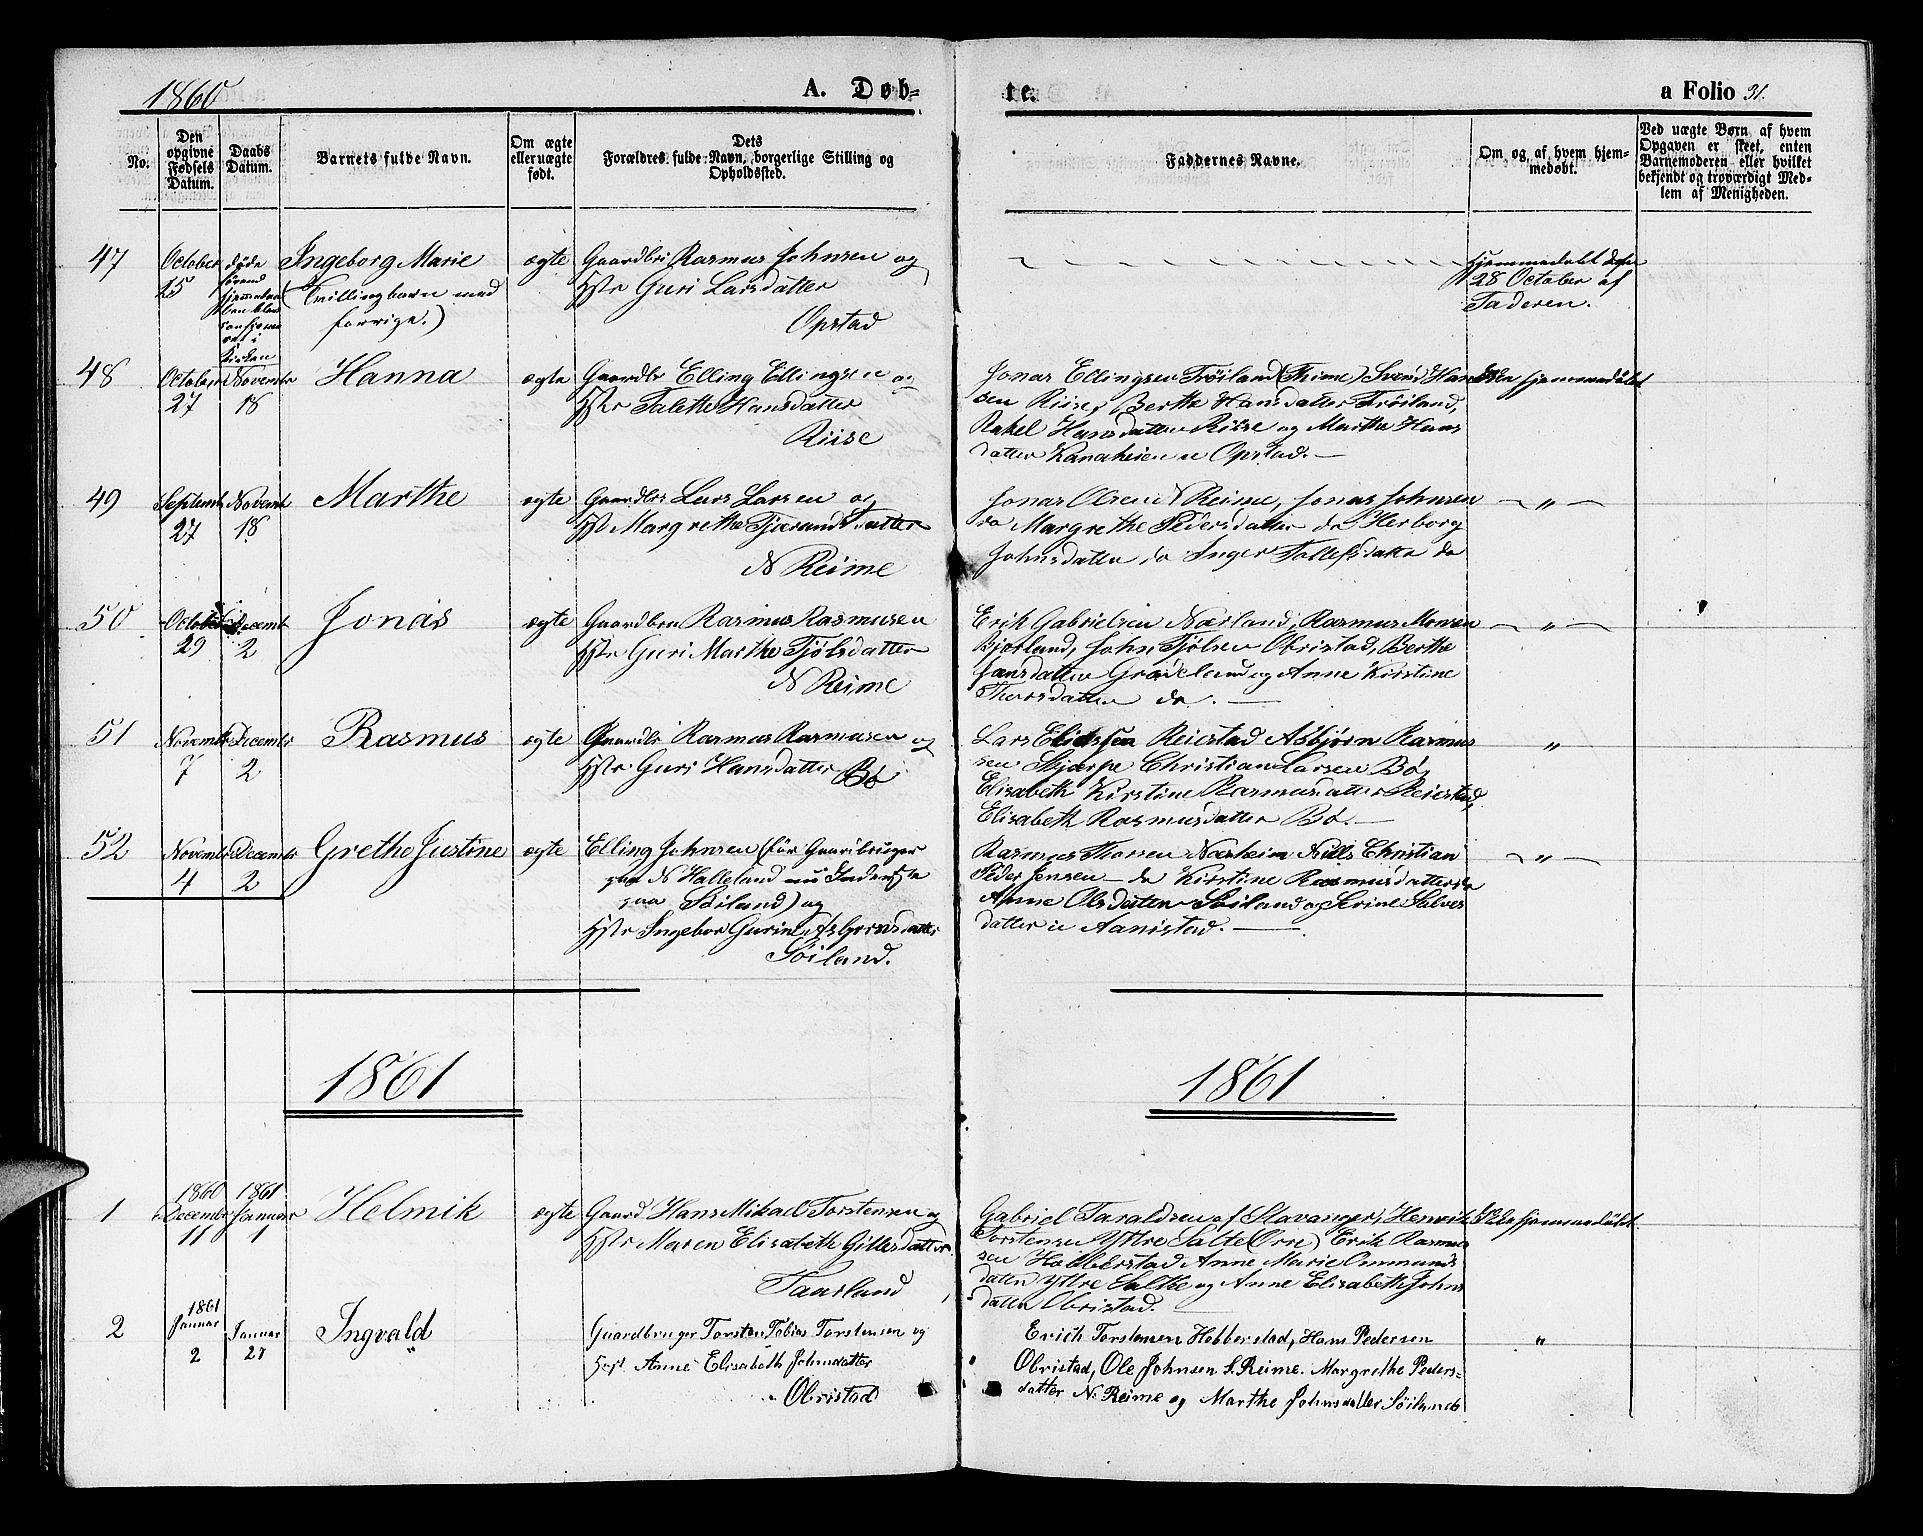 1860
A. Døb-
te.
a Folio 31.
No.
Den opgivne Fødsels Datum.
Daabs Datum.
Barnets fulde Navn.
Om ægte eller uægte født.
Dets Forældres fulde Navn, borgerlige Stilling og Opholdssted.
Faddernes Navne.
Om, og af hvem hjemmedøbt.
Ved uægte Børn, af hvem Opgaven er skeet, enten Barnemoderen eller hvilket bekjendt og troværdigt Medlem af Menigheden.
47
October 25
døde
Ingeborg Marie
(Tvillingbarn med
forrige.)
ægte
Gaardbr Rasmus Johnsen og
Hstr Guri Larsdatter
Opstad
Hjemmedøbt den
28 October af
Faderen.
48
October 27
Novembr 18
Hanna
ægte
Gaardbr Elling Ellingsen og
Hstr Talette Hansdatter
Riise
Jonas Ellingsen Trøiland (Thime) Svend Han
sen Riise, Berthe Hansdatter Trøiland,
Rakel Hansdatter Riise og Marthe Hans
datter Kanaheien u Opstad.
Ikke hjemmedøbt
49
Septembr 27
Novemb 18
Marthe
ægte
Gaardbr Lars Larsen og
Hst Margrethe Tjerandsdatter
N Reime
Jonas Olsen N Reime, Jonas Johnsen
do Margrethe Pedersdatter do Herborg
Johnsdatter do Inger Tollefsdatter do
— " —
50
October 29
Decembr 2
Jonas
ægte
Gaardbr Rasmus Rasmusen
Hstr Guri Marthe Tjølsdatter
N Reime
Erik Gabrielsen Nærland, Rasmus Monsen
Bjorland, John Tjølsen Obristad, Berthe
Jansdatter Grødeland og Anne Kirstine
Thorsdatter do.
— " —
51
Novembr 7
Decembr 2
Rasmus
ægte
Gaardbr Rasmus Rasmusen og
Hstr Guri Hansdatter Bø
Lars Eliassen Reiestad Asbjørn Rasmus
sen Skjærpe Christian Larsen Bø,
Elisabeth Kirstine Rasmusdatter Reiestad,
Elisabeth Rasmusdatter Bø.
"
52
Novembr 4
Decembr 2
Grethe Justine
ægte
Elling Johnsen (før Gaardbruger
paa N Halleland nu Inderste
paa Søiland) og
Hstr Ingebor Gurine Asbjørnsdatter
Søiland.
Rasmus Thorsen Nærheim Niels Christian
Peder Jensen do Kirstine Rasmusdatter do
Anne Olsdatter Søiland og Serine Salves
datter u Aanestad.
— " —
1861
1861
1
1860
December 11
1861
Januar 1
Helmik
ægte
Gaard Hans Mikael Torstensen og
Hstr Maren Elisabeth Gillesdatter
Taarland
Gabriel Taraldsen af Stavanger, Henrik
Torstensen Yttre Salte (Orre) Erik Rasmus
sen Hobberstad Anne Marie Ommunds
datter Yttre Salthe og Anne Elisabeth Johns
datter Obristad.
Ikke hjemmedøbt
2
1861
Januar
2
Januar
27
Ingvald
Gaardbruger Torsten Tobias Torstensen og
Hst Anne Elisabeth Johnsdatter
Obristad
Erich Torstensen Hobberstad, Hans Pedersen
Obristad, Ole Johnsen S. Reime. Margrethe Peders-
datter N. Reime og Marthe Johnsdatter Søiland
"